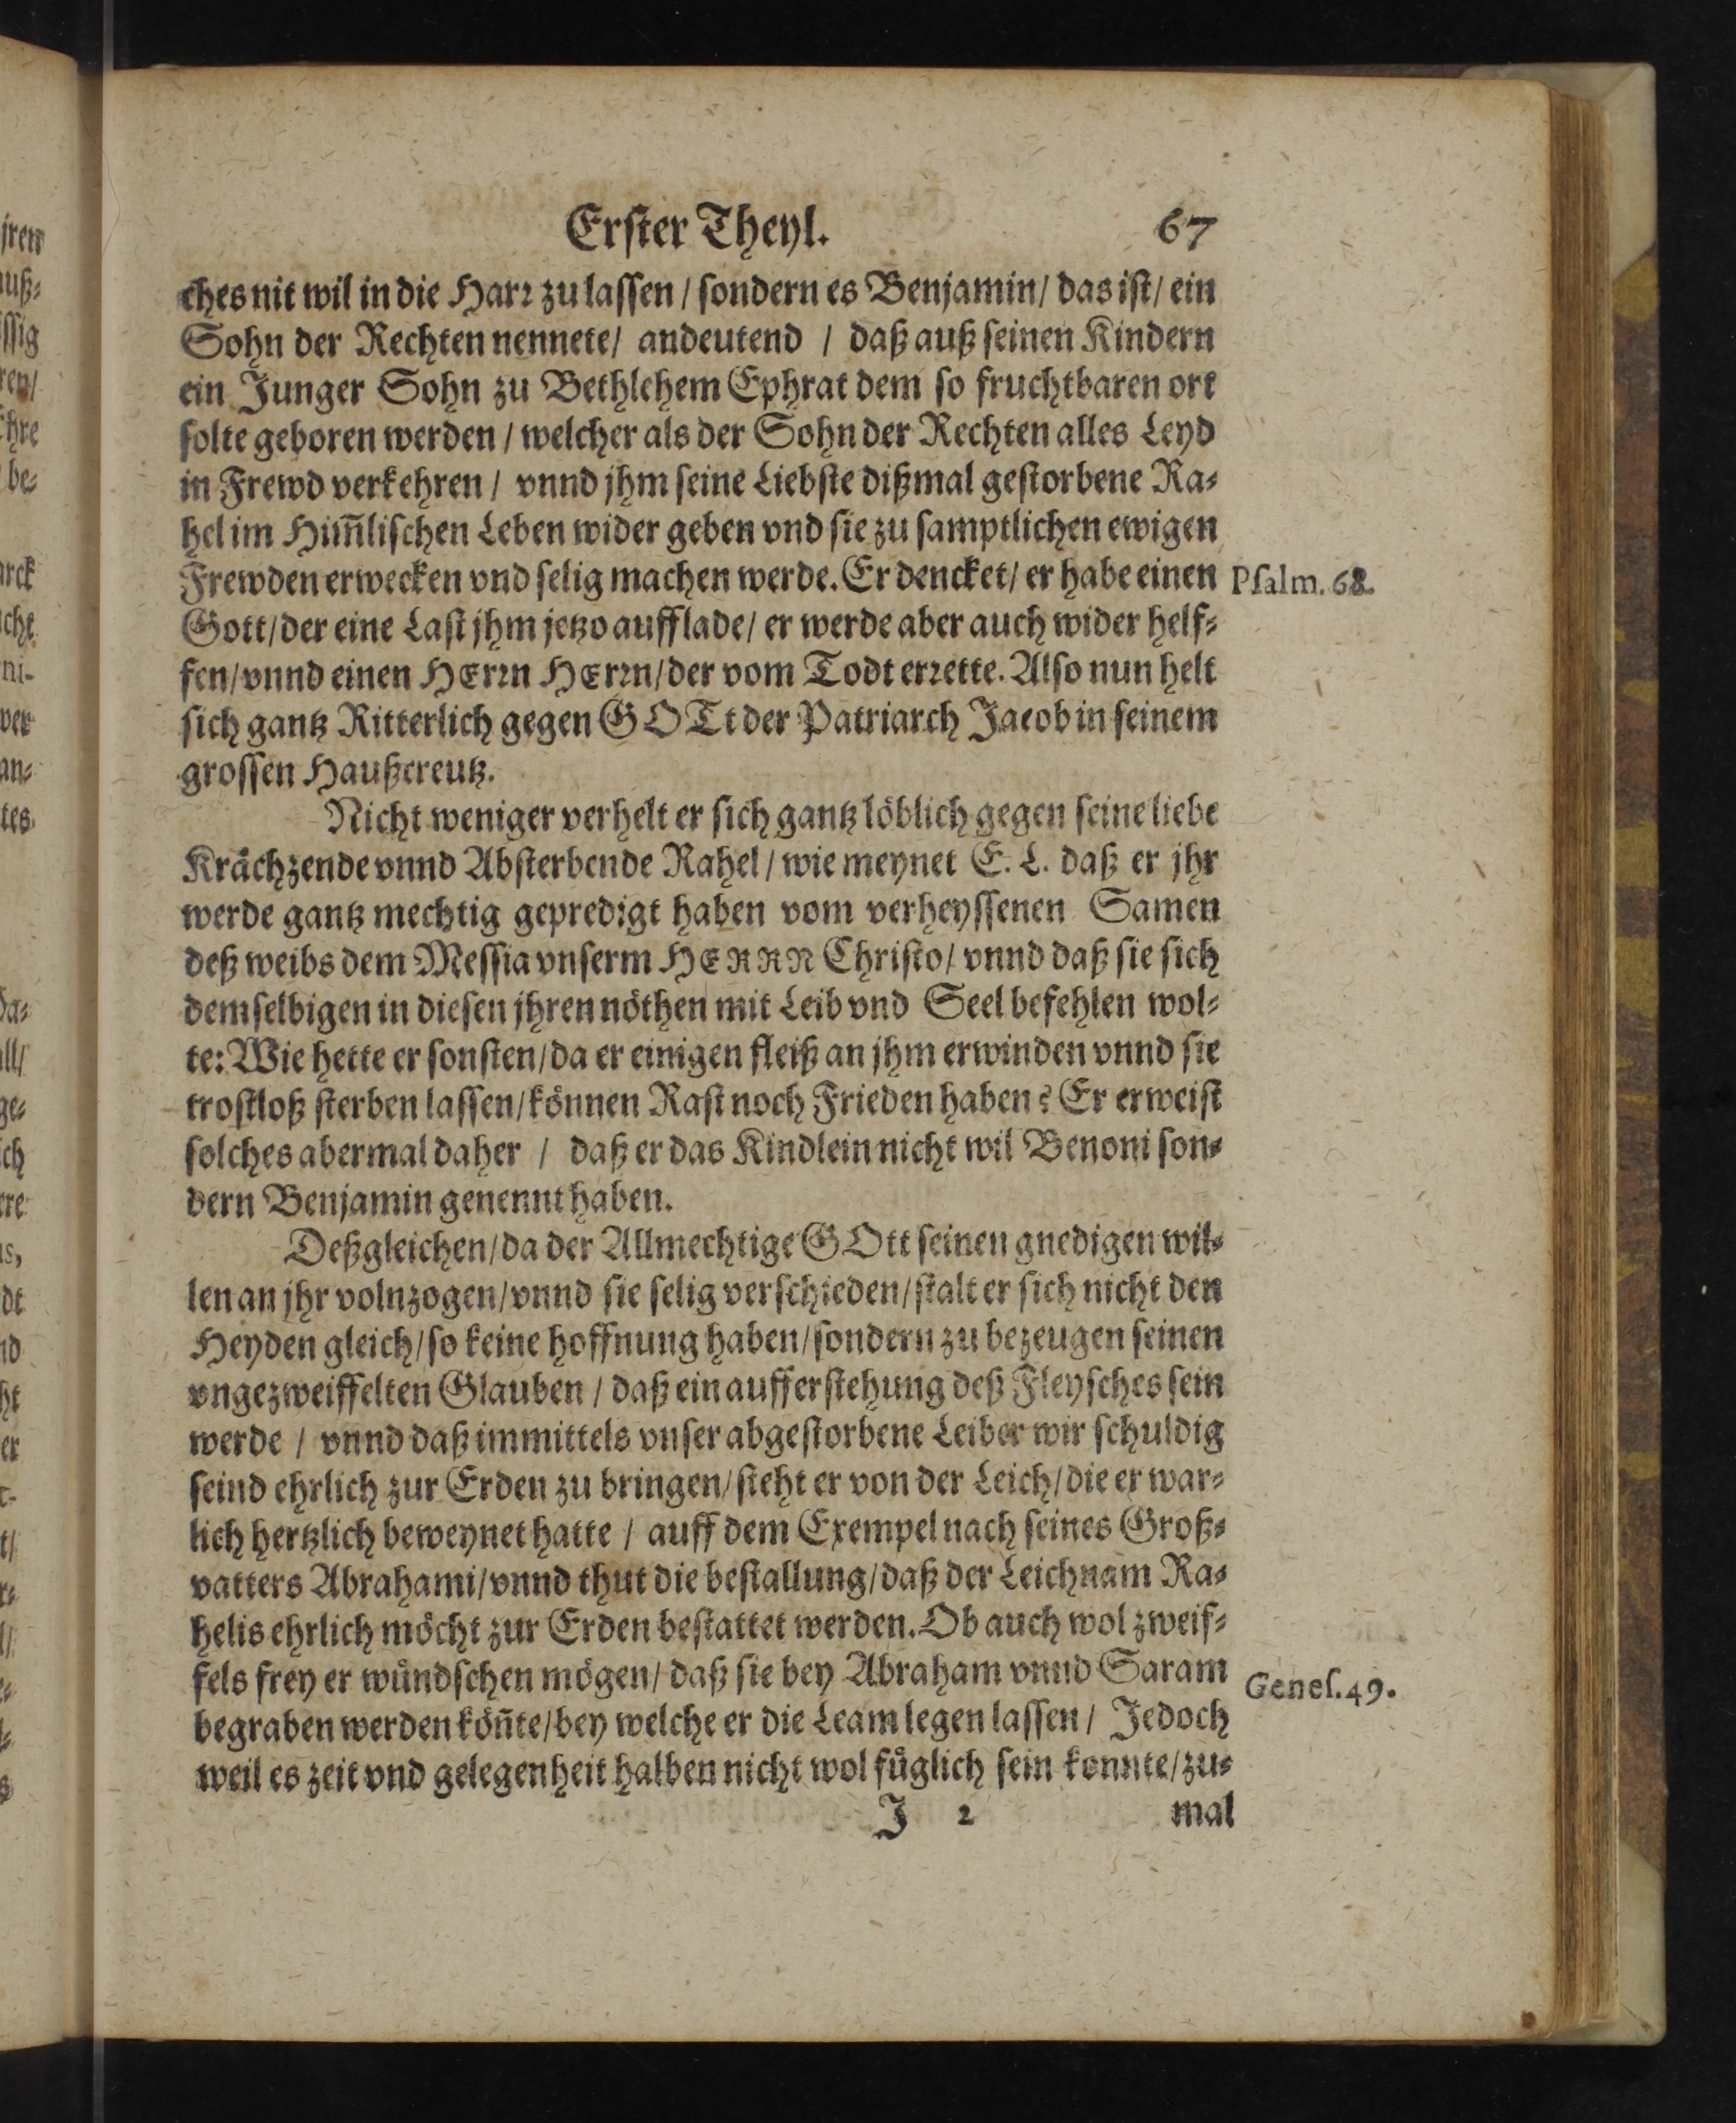 Erster Theyl. 67
ches nit wil in die Harr zu lassen / sondern es Benjamin / das ist / ein
Sohn der Rechten nennete / andeutend / daß auß seinen Kindern
ein Junger Sohn zu Bethlehem Ephrat dem so fruchtbaren ort
solte geboren werden / welcher als der Sohn der Rechten alles Leyd
in Frewd verkehren / vnnd jhm seine Liebste dißmal gestorbene Ra-
hel im Him̃lischen Leben wider geben vnd sie zu samptlichen ewigen
Frewden erwecken vnd selig machen werde. Er dencket / er habe einen
Psalm. 68.
Gott / der eine Last jhm jetzo aufflade / er werde aber auch wider helf-
fen / vnnd einen HErrn HErrn / der vom Todt errette. Also nun helt
sich gantz Ritterlich gegen GOTt der Patriarch Jacob in seinem
grossen Haußcreutz.
Nicht weniger verhelt er sich gantz löblich gegen seine liebe
Krächzende vnnd Absterbende Rahel / wie meynet E. L. daß er jhr
werde gantz mechtig gepredigt haben vom verheyssenen Samen
deß weibs dem Messia vnserm HERRN Christo / vnnd daß sie sich
demselbigen in diesen jhren nöthen mit Leib vnd Seel befehlen wol-
te: Wie hette er sonsten / da er einigen fleiß an jhm erwinden vnnd sie
trostloß sterben lassen / können Rast noch Frieden haben? Er erweist
solches abermal daher / daß er das Kindlein nicht wil Benoni son-
dern Benjamin genennt haben.
Deßgleichen / da der Allmechtige GOtt seinen gnedigen wil-
len an jhr volnzogen / vnnd sie selig verschieden / stalt er sich nicht den
Heyden gleich / so keine hoffnung haben / sondern zu bezeugen seinen
vngezweiffelten Glauben / daß ein aufferstehung deß Fleysches sein
werde / vnnd daß immittels vnser abgestorbene Leiber wir schuldig
seind ehrlich zur Erden zu bringen / steht er von der Leich / die er war-
lich hertzlich beweynet hatte / auff dem Exempel nach seines Groß-
vatters Abrahami / vnnd thut die bestallung / daß der Leichnam Ra-
helis ehrlich möcht zur Erden bestattet werden. Ob auch wol zweif-
fels frey er wündschen mögen / daß sie bey Abraham vnnd Saram
Genes. 49.
begraben werden kön̄te / bey welche er die Leam legen lassen / Jedoch
weil es zeit vnd gelegenheit halben nicht wol füglich sein konnte / zu-
J 2 mal